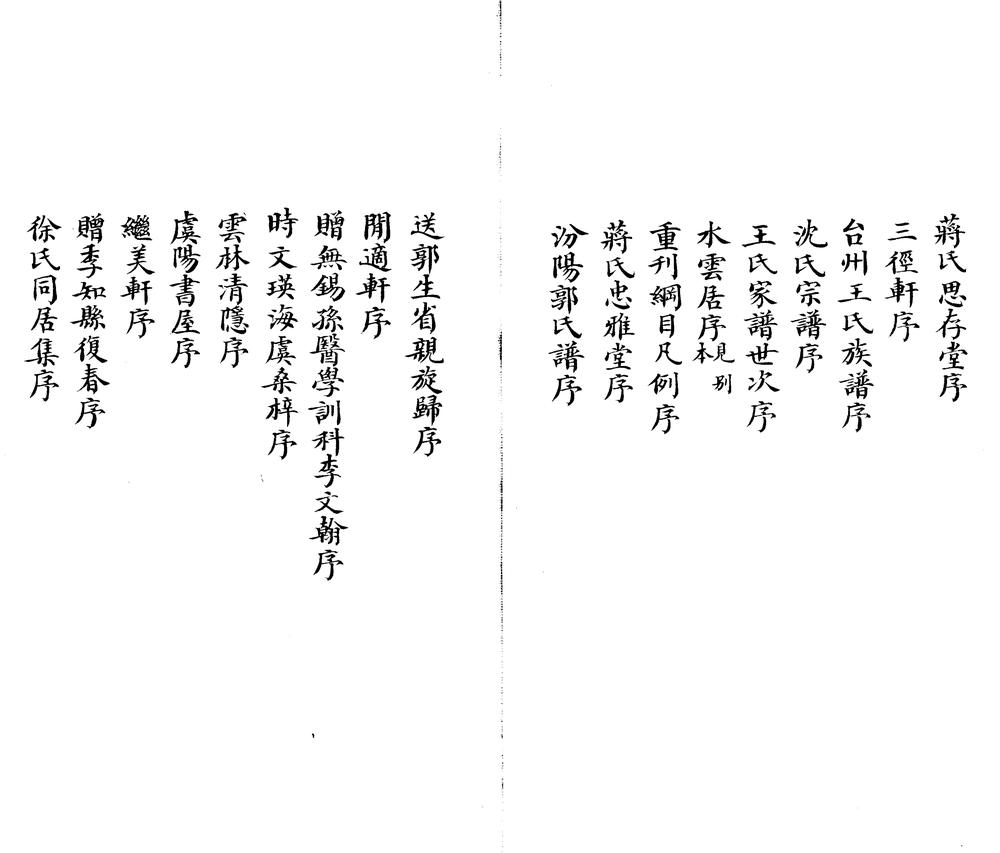 蔣氏思存堂序
三徑軒序
台州王氏族譜序
沈氏宗譜序
王氏家譜世次序
水雲居序見別本
重刊綱目凡例序
蔣氏忠雅堂序
汾陽郭氏譜序
送郭生省親旋歸序
閒適軒序
贈無錫孫醫學訓科李文翰序
時文瑛海虞桑梓序
雲林清隱序
虞陽書屋序
繼美軒序
贈季知縣復春序
徐氏同居集序